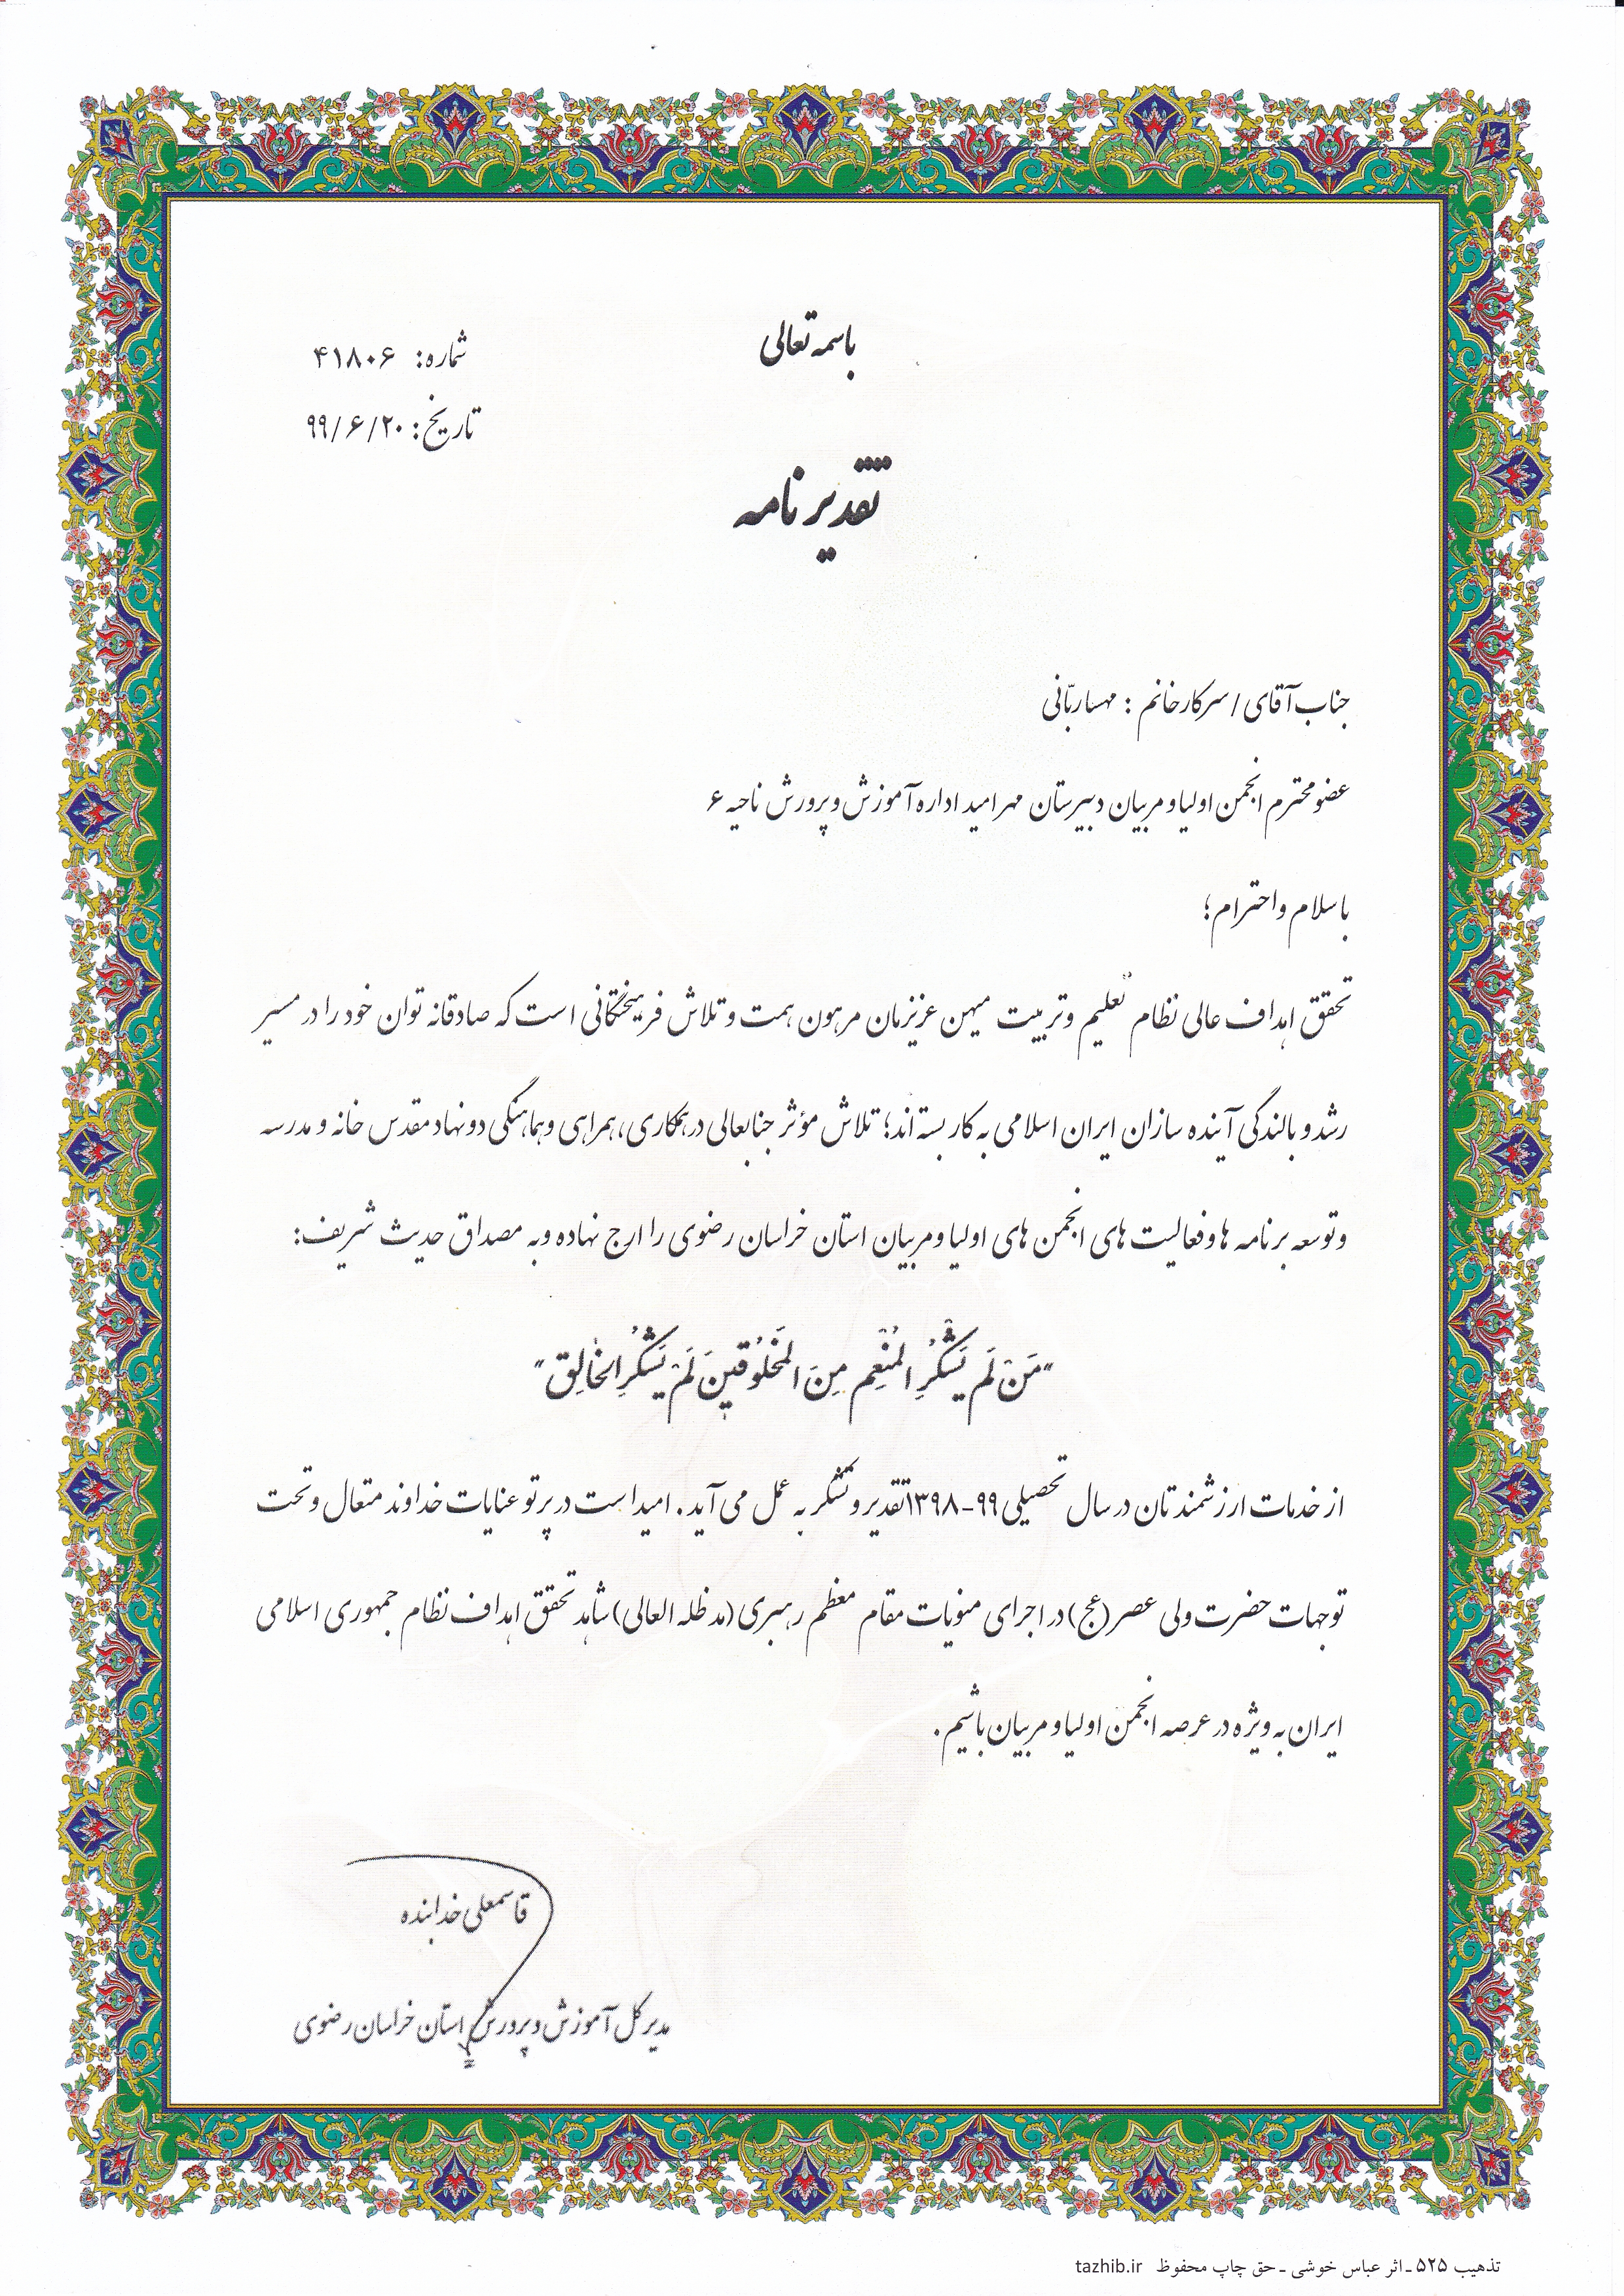 باسمه تعالی
شماره: ۴۱۸۰۶
تاریخ: ۹۹/۶/۲۰
تقدیرنامه
جناب آقای / سرکار خانم : مهسا ربّانی
عضو محترم انجمن اولیا و مربیان دبیرستان مهر امید اداره آموزش و پرورش ناحیه ۶
با سلام و احترام؛
تحقق اهداف عالی نظام تعلیم و تربیت میهن عزیزمان مرهون همت و تلاش فرهیختگانی است که صادقانه توان خود را در مسیر
رشد و بالندگی آینده سازان ایران اسلامی به کار بسته اند؛ تلاش مؤثر جنابعالی در همکاری، همراهی و هماهنگی دو نهاد مقدس خانه و مدرسه
و توسعه برنامه ها و فعالیت های انجمن های اولیا و مربیان استان خراسان رضوی را ارج نهاده و به مصداق حدیث شریف:
"مَن لَم یَشکُرِ المُنعِم مِنَ المَخلُوقینَ لَم یَشکُرِ الخالِق"
از خدمات ارزشمندتان در سال تحصیلی ۹۹-۱۳۹۸ تقدیر و تشکر به عمل می آید. امید است در پرتو عنایات خداوند متعال و تحت
توجهات حضرت ولی عصر (عج) در اجرای منویات مقام معظم رهبری (مدظله العالی) شاهد تحقق اهداف نظام جمهوری اسلامی
ایران به ویژه در عرصه انجمن اولیا و مربیان باشیم.
قاسمعلی خدابنده
مدیرکل آموزش و پرورش استان خراسان رضوی
تذهیب ۵۲۵ ـ اثر عباس خوشی ـ حق چاپ محفوظ tazhib.ir